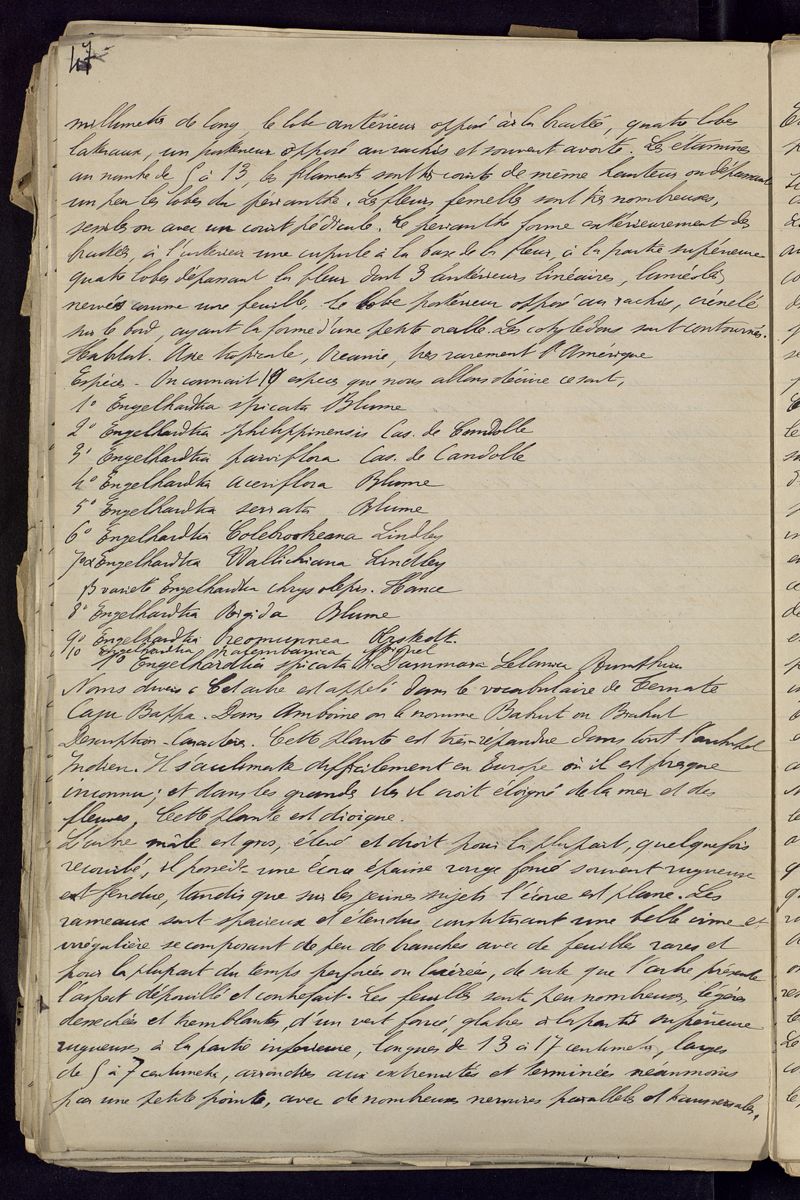 47
millimetres de long, le lobe antérieur opposé à la bractée, quatre lobes
lateraux, un posterieur opposé au rachis et souvent avorté. Les étamines
au nombre de 5 à 13, les filaments sont très courts de même hauteur ou dépassant
un peu les lobes du périanthe. Les fleurs femelles sont très nombreuses,
sessiles ou avec un court pédicule. Le périanthe forme extérieurement des
bractées, à l'interieur une cupule à la base de la fleur, à la partie supérieure
quatre lobes dépassant la fleur dont 3 antérieurs linéaires, lancéolés,
nervés comme une feuille, le lobe postérieur opposé au rachis, crenelé
sur le bord, ayant la forme d'une petite oreille. Les cotyledons sont contournés.
Habitat. Asie tropicale, Oceanie, très rarement l'Amérique
Espèces - On connait 19 especes que nous allons décrire ce sont,
1° Engelhardtia spicata Blume
2° Engelhardtia philippinensis Cas. de Candolle
3° Engelhardtia parviflora Cas. de Candolle
4° Engelhardtia aceriflora Blume
5° Engelhardtia serrata Blume
6° Engelhardtia Colebrookeana Lindley
7° α Engelhardtia Wallichiana Lindley
β varieté Engelhardtia chrysolepis. Hance
8° Engelhardtia Rigida Blume
9° Engelhardtia Oreomunnea
10 Engelhardtia Miquel
1° Engelhardtia spicata Dammara Selanica Rumphius
Noms divers : Cet arbre est appelé dans le vocabulaire de Ternate
Caju Bappa. Dans Amboine on le nomme Bahut ou Brahut
Description - Caractères. Cette plante est très-répandue dans tout l'archipel
Indien. Il s'aclimate difficilement en Europe où il est presque
inconnu ; et dans les grandes iles il croit éloigné de la mer et des
fleuves, Cette plante est dioique.
L'arbre mâle est gros, élevé et droit pour la plupart, quelquefois
recourbé, il possède une écorce épaisse rouge foncé souvent rugueuse
et fendue, tandis que sur les jeunes sujets l'écorce est plane. Les
rameaux sont spacieux et étendus, constituant une belle cime et
irrégulière se composant de peu de branches avec de feuilles rares et
pour la plupart du temps perforées ou lacérées, de sorte que l'arbre présente
l'aspect dépouillé et contrefait. Les feuilles sont peu nombreuses, légères
dessechées et tremblantes, d'un vert foncé, glabres à la partie supérieure
rugueuses à la partie inferieure, longues de 13 à 17 centimetres, larges
de 5 à 7 centimetres, arrondies aux extremités et terminées néanmoins
par une petite pointe, avec de nombreuses nervures paralleles et transversales,